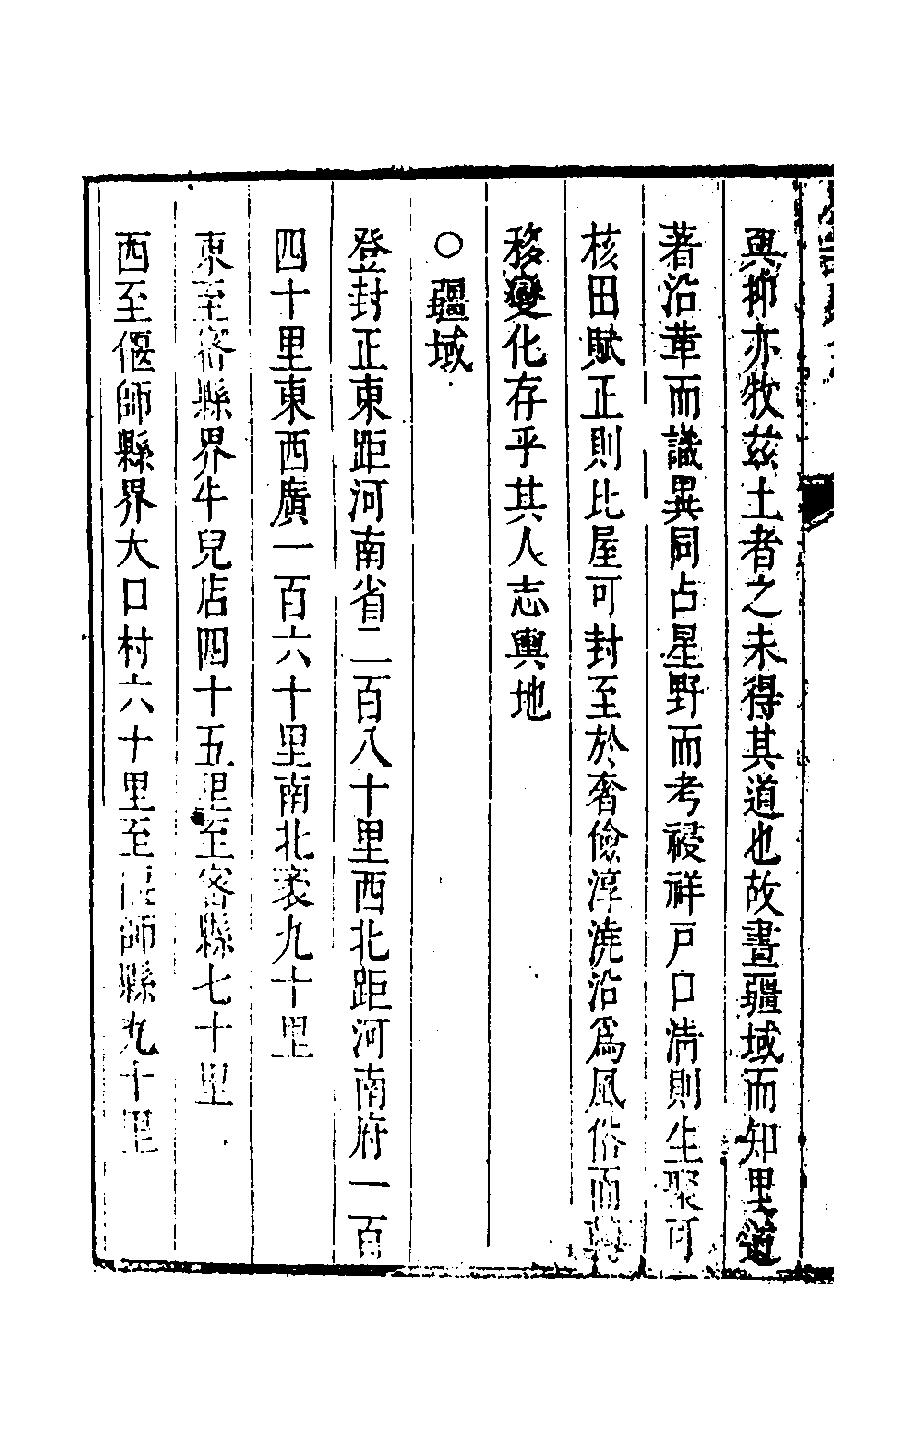 與抑亦牧茲土者之未得其道也故晝疆域而知里道
著沿革而識異同占星野而考祲祥戸口清則生聚可
核田賦正則比屋可封至於奢儉淳澆沿爲風俗而轉
移變化存乎其人志輿地
○疆域
登封正東距河南省二百八十里西北距河南府一百
四十里東西廣一百六十里南北袤九十里
東至密縣界牛兒店四十五里至密縣七十里
西至偃師縣界大口村六十里至偃師縣九十里